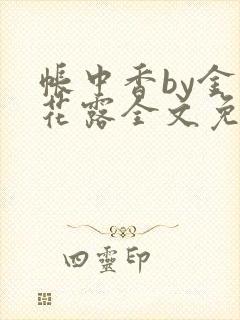 帳中香by金
花露全文免
四靈印